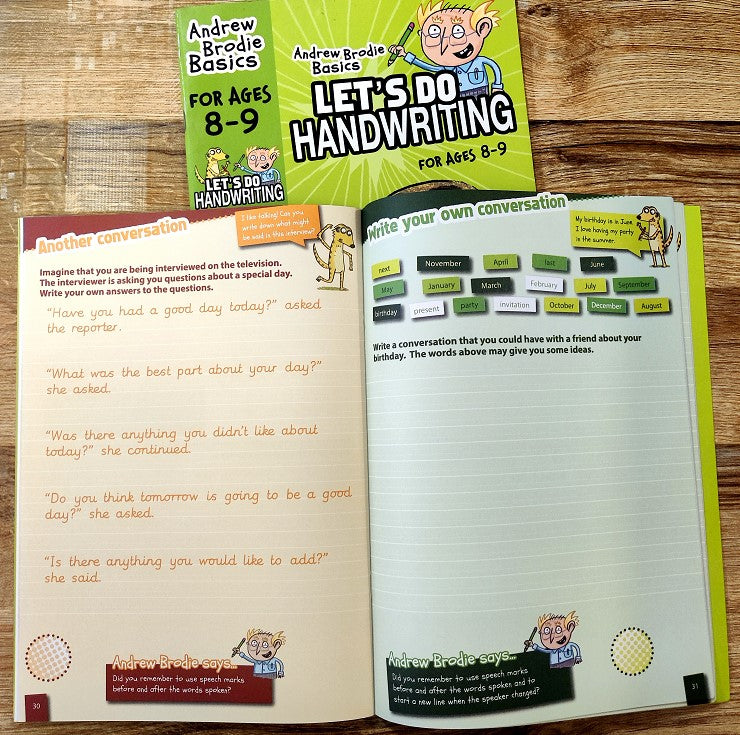 Andrew
Brodie
Basics
FOR AGES
8-9
LET'S DO
HANDWRITING
Andrew Brodie
Basics
LET'S DO
HANDWRITING
FOR AGES 8-9
Another conversation
I like talking! Can you
write down what might
be said in this interview?
Imagine that you are being interviewed on the television.
The interviewer is asking you questions about a special day.
Write your own answers to the questions.
"Have you had a good day today?" asked
the reporter.
"What was the best part about your day?"
she asked.
"Was there anything you didn't like about
today?" she continued.
"Do you think tomorrow is going to be a good
day?" she asked.
"Is there anything you would like to add?"
she said.
Andrew Brodie says...
Did you remember to use speech marks
before and after the words spoken?
30
Write your own conversation
My birthday is in June.
I love having my party
in the summer.
next November April last June
May January March February July September
birthday present party invitation October December August
Write a conversation that you could have with a friend about your
birthday. The words above may give you some ideas.
Andrew Brodie says...
Did you remember to use speech marks
before and after the words spoken and to
start a new line when the speaker changed?
31